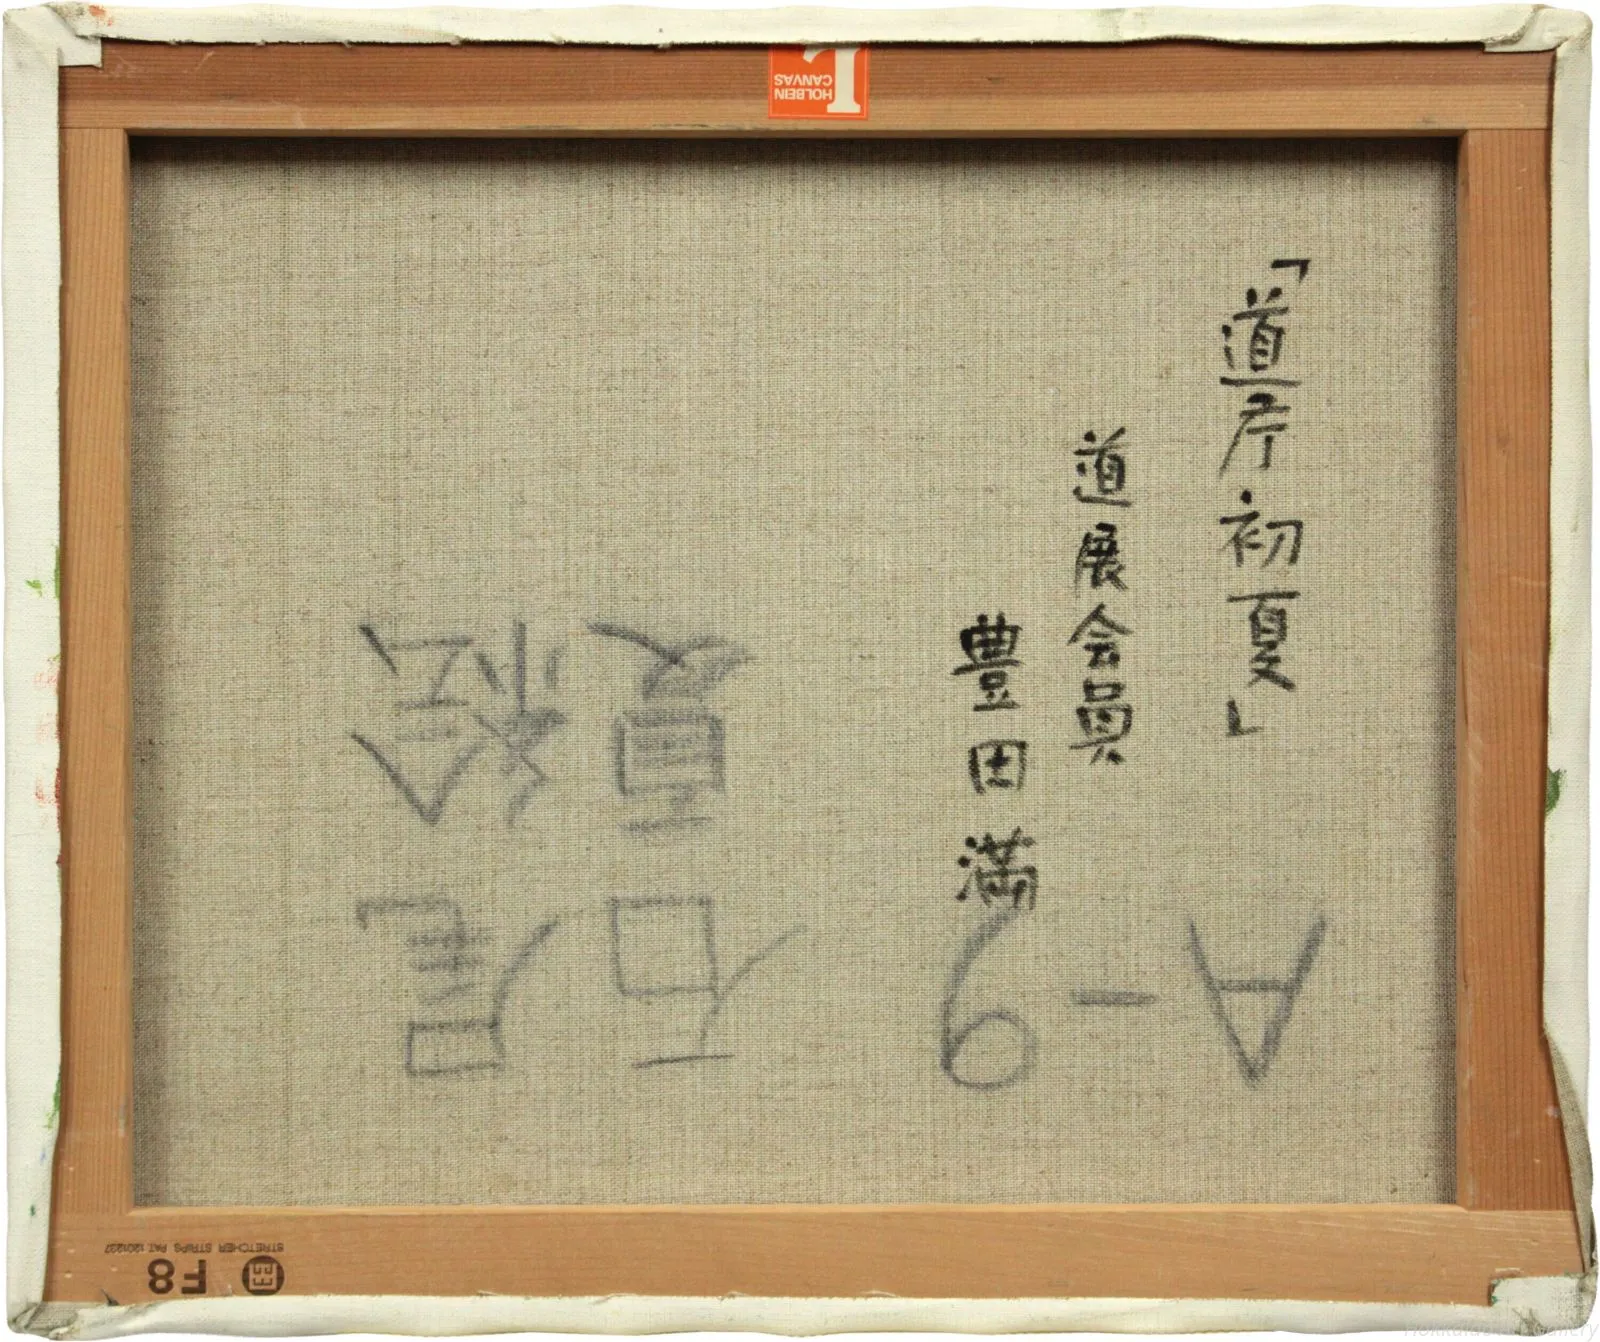 HOLBEIN
CANVAS
「道庁初夏」
道展会員
豊田満
A-9
石尾
夏絵
F8
STRETCHER STRIPS PAT. 1201237